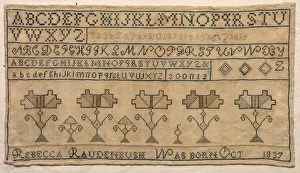 ABCDEFGHIJKLMNOPQRSTU
VWXYZ
ABCDEFGHIJKLMNOPQRSTUVWXY
ABCDEFGHIJKLMNOPQRSTUVWXYZ& Z
abcdefghijklmnopqrstuvwxyz
REBECCA RAUDENBUSH WAS BORN OCT 1827